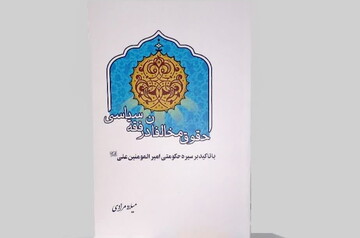 حقوق مخالفان در فقه سیاسی
با تاکید بر سیره حکومتی امیرالمومنین علی
میلاد مرادی